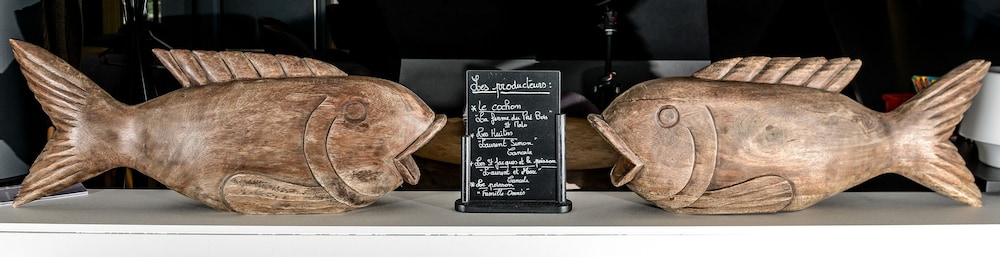 Les producteurs :
* Le cochon
"La ferme du Pré Bois"
St Malo
* Les Huîtres
"Laurent Simon"
Cancale
* Les St Jacques et le poisson
"Laurent et
Cancale
* Le poisson
"Famille